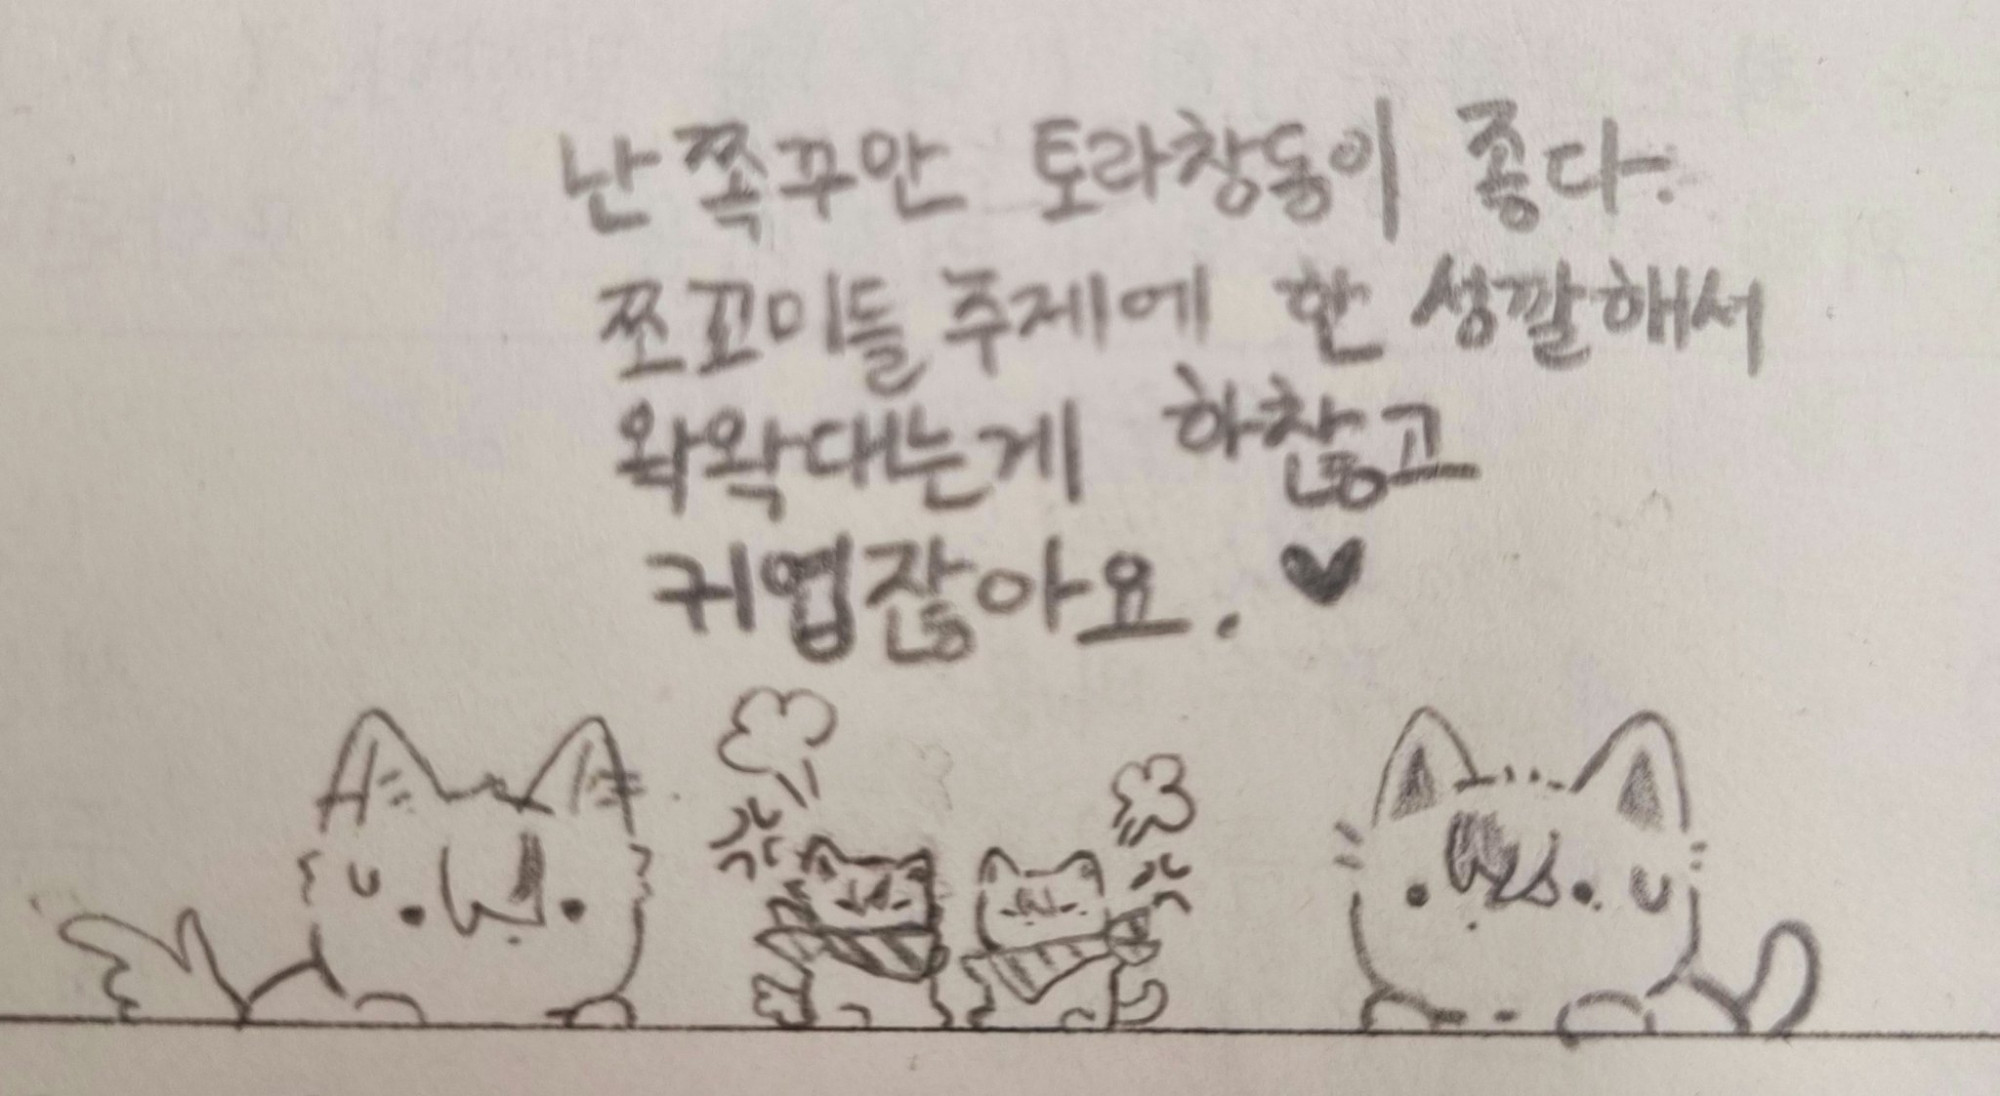 난 쪽꾸만 토라창동이 좋다.
쪼꼬미들 주제에 한 성깔해서
왁왁대는게 하찮고
귀엽잖아요. ♥